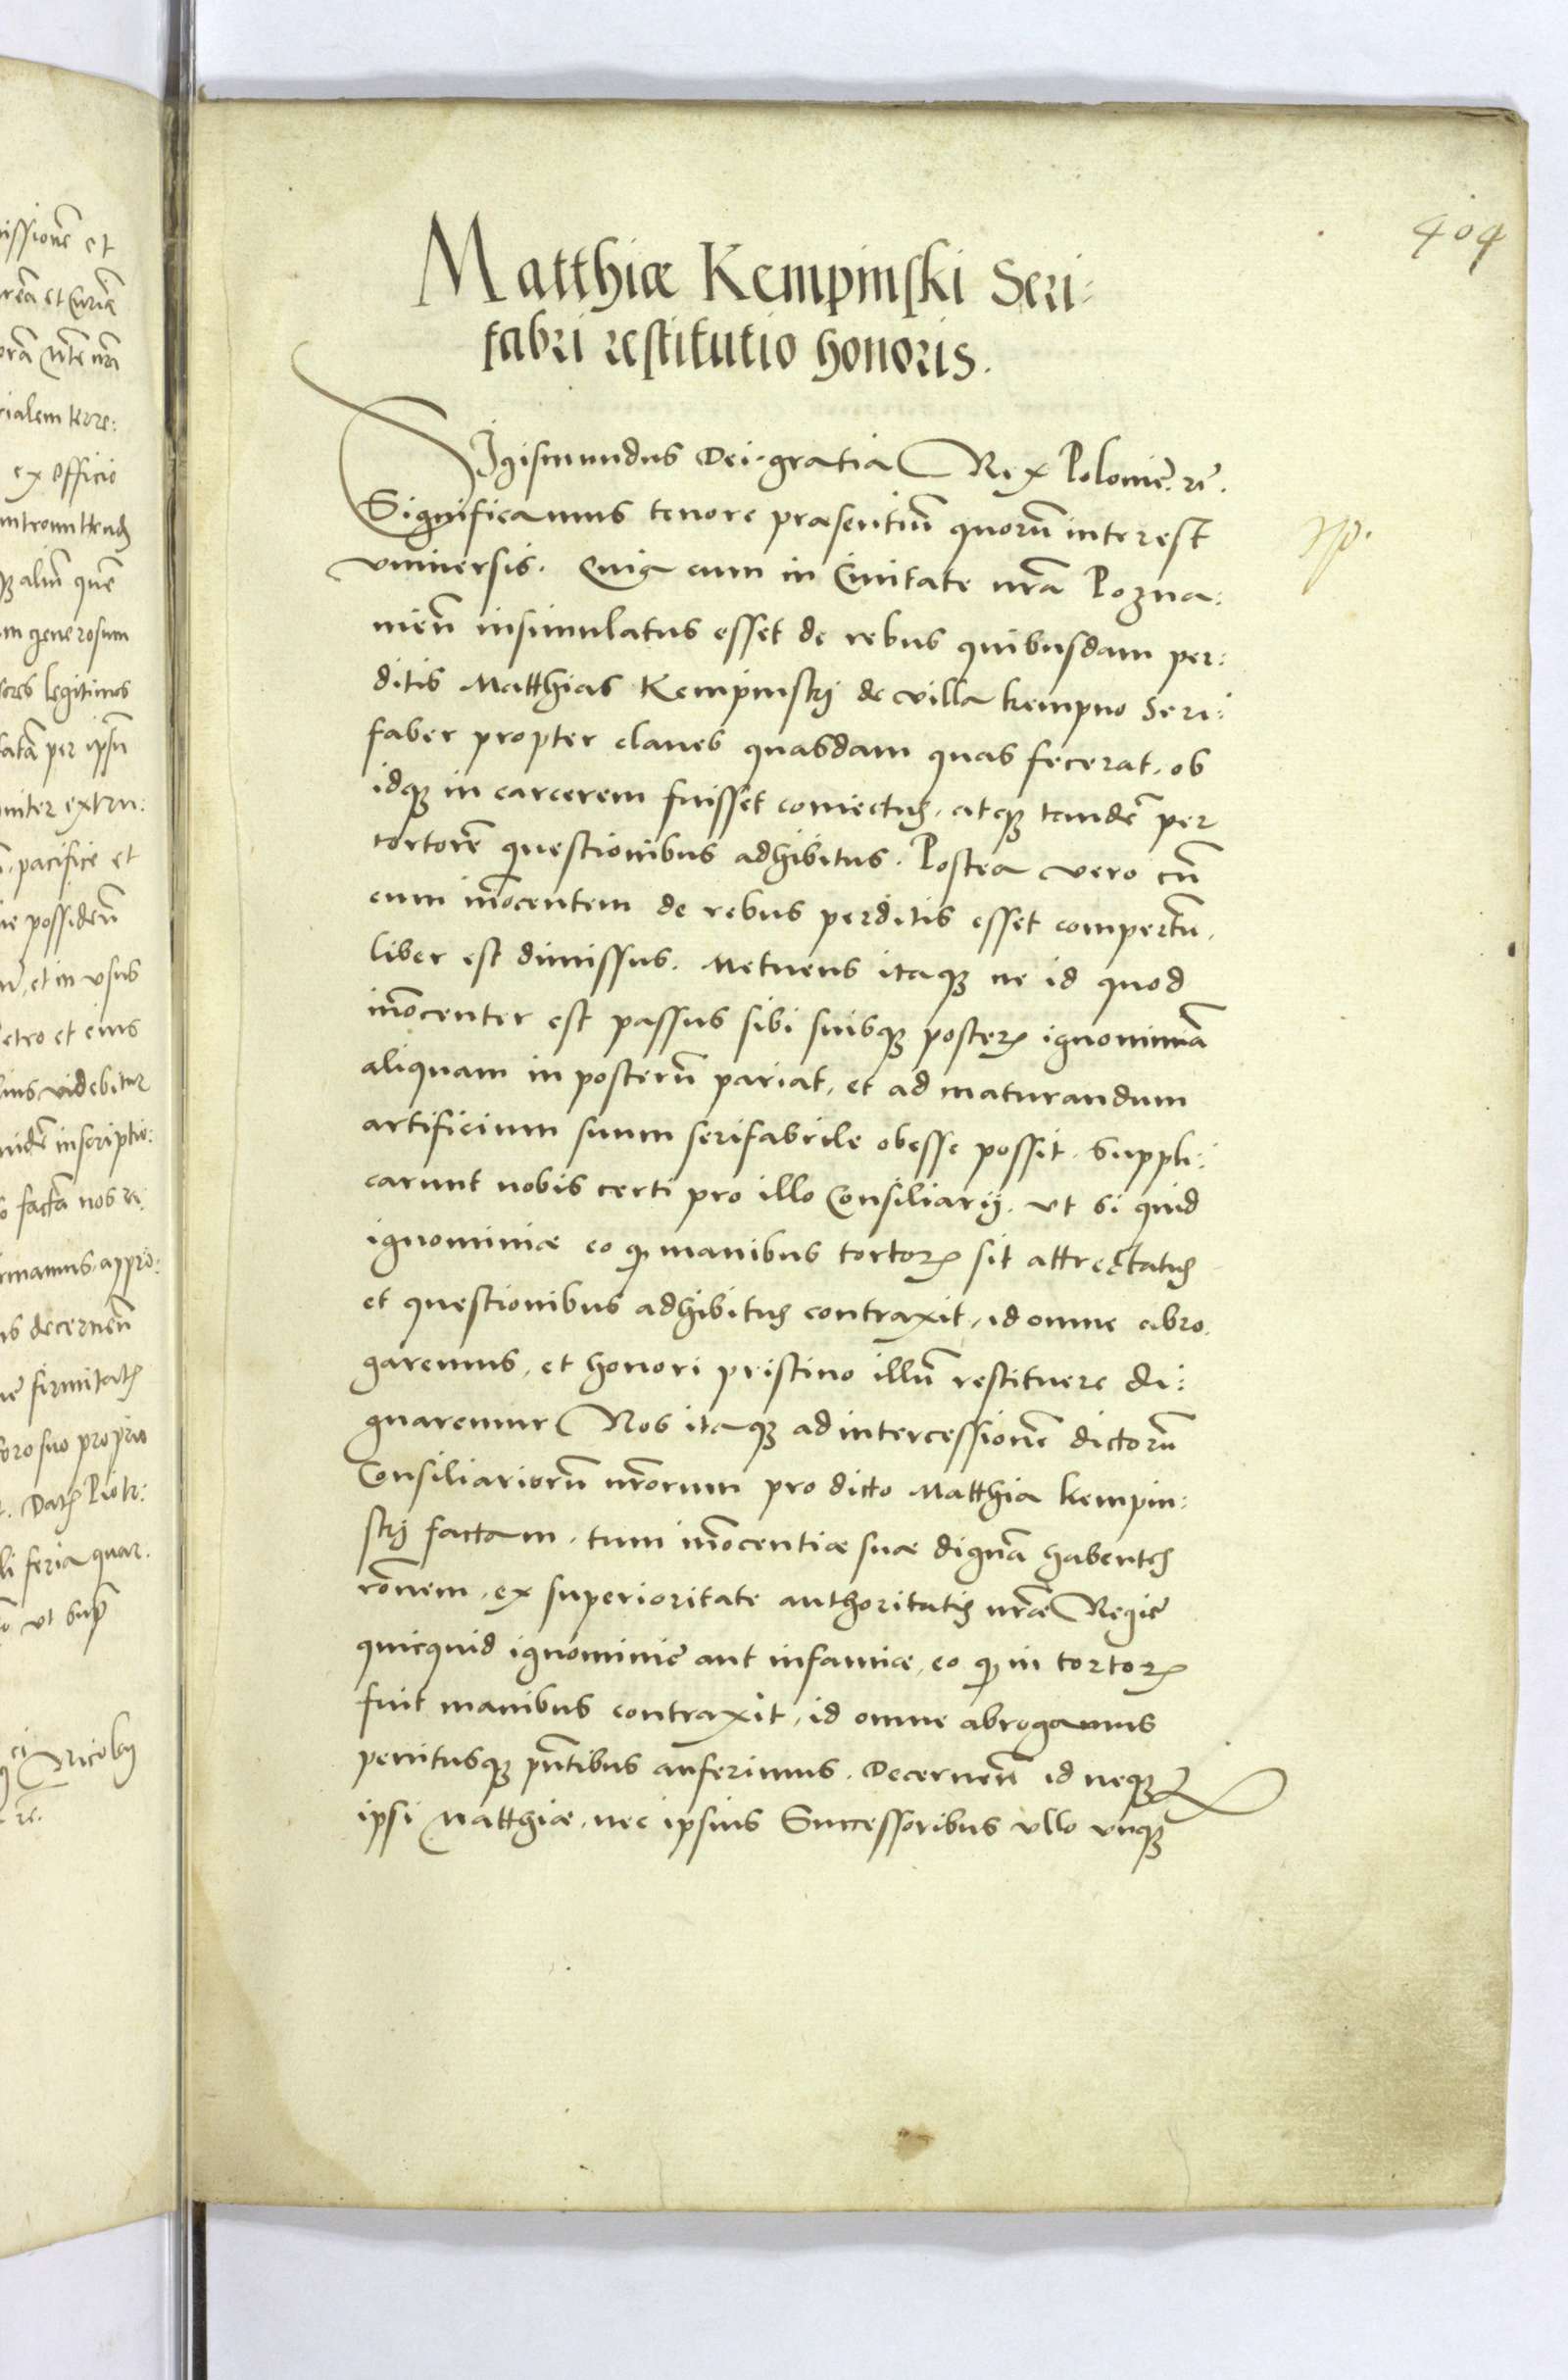 issione et
ream et Curiam
oram nte nra
rialem terre:
ex officio
intromittend
alium quem
m generosum
ores legitimos
atam per ipsum
niter extru:
pacifice et
ne possiden
et in vsus
etro et eius
lius videbitur
inscriptio:
factam nos ra:
rmamus, appro:
is decernen
ne firmitatis
foro suo proprio
Datis Piotr:
li feria quar.
ut supra
Nicolay
re.
404
Matthiæ Kempinski Seri:
fabri restitutio honoris.
Sigismundus Dei gratia Rex Polonie. re.
Significamus tenore præsentiũ quorũ interest
vniuersis. Quia cum in Ciuitate nrã Pozna:
nien̄ insimulatus esset de rebus quibusdam per:
ditis Matthias Kempinskj de villa kempno Seri:
faber propter claues quasdam quas fecerat, ob
idqꝫ in carcerem fuisset coniectus, atqꝫ tandẽ per
tortorẽ questionibus adhibitus. Postea vero cũ
eum iñocentem de rebus perditis esset compertũ,
liber est dimissus. Metuens itaqꝫ ne id quod
iñocenter est passus sibi suisqꝫ posteris ignominiã
aliquam in posterũ pariat, et ad maturandum
artificium suum serifabrile obesse possit. Suppli:
carunt nobis certi pro illo Consiliarij, vt si quid
ignominiæ eo ꝙ manibus tortoris sit attrectatus
et questionibus adhibitus contraxit, id omne abro.
garemus, et honori pristino illũ restituere di:
gnaremur Nos itaqꝫ ad intercessionẽ dictorũ
Consiliariorũ nrõrum pro dicto Matthia kempin:
skj factam, tum iñocentiæ suæ dignã habentes
rõnem, ex superioritate authoritatis nræ Regie
quicquid ignominie aut infamiæ, eo ꝙ in tortoris
fuit manibus contraxit, id omne abrogamus
penitusqꝫ pñtibus auferimus. Decernen̄ id neqꝫ
ipsi Matthiæ, nec ipsius Successoribus vllo vnqꝫ